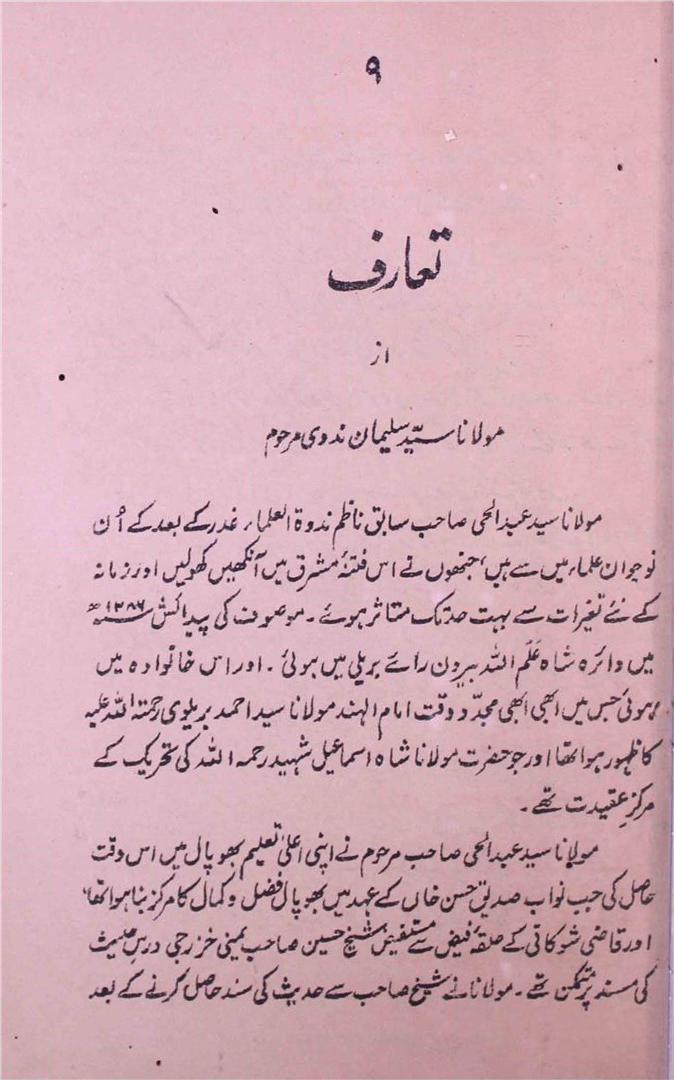 ۹
تعارف
از
مولانا سیّد سلیمان ندوی مرحوم
مولانا سید عبدالحی صاحب سابق ناظم ندوۃ العلماء غدر کے بعد کے اُن
نوجوان علماء میں سے ہیں، جنھوں نے اس فتنۂ مشرق میں آنکھیں کھولیں اور زمانہ
کے نئے تغیرات سے بہت حد تک متاثر ہوئے۔ موصوف کی پیدائش ۱۲۸۶ھ
میں دائرہ شاہ عَلَم اللہ بیرون رائے بریلی میں ہوئی۔ اور اس خانوادہ میں
ہوئی جس میں ابھی ابھی مجدّد وقت امام الہند مولانا سید احمد بریلوی رحمتہ اللہ علیہ
کا ظہور ہوا تھا اور جو حضرت مولانا شاہ اسماعیل شہید رحمہ اللہ کی تحریک کے
مرکزِ عقیدت تھے۔
مولانا سید عبدالحی صاحب مرحوم نے اپنی اعلیٰ تعلیم بھوپال میں اس وقت
حاصل کی جب نواب صدیق حسن خاں کے عہد میں بھوپال فضل و کمال کا مرکز بنا ہوا تھا،
اور قاضی شوکانی کے حلقۂ فیض سے مستفیض شیخ حسین صاحب یمنی خزرجی درسِ حدیث
کی مسند پر متمکن تھے۔ مولانا نے شیخ صاحب سے حدیث کی سند حاصل کرنے کے بعد